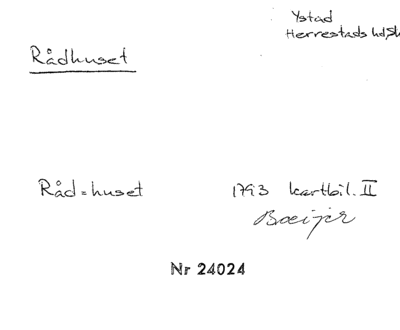 Ystad
Herrestads hd, Sk
Rådhuset
Råd=huset 1793 kartbil. II
Boeijer
Nr 24024